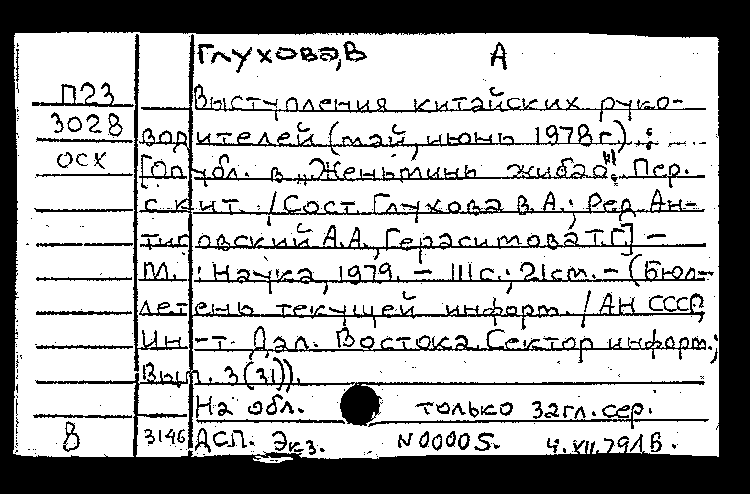 Глухова, В А
П23 Выступления китайских руко-
3028 водителей (май, июнь 1978 г.) :
осх [Опубл. в „Женьминь жибао". Пер.
с кит. / Сост. Глухова В.А.; Ред. Ан-
типовский А.А., Герасимова Т.Г.] —
М. : Наука, 1979. — 111 с.; 21 см. — (Бюл-
летень текущей информ. / АН СССР,
Ин-т. Дал. Востока. Сектор информ.;
Вып. 3(31)).
На обл. только загл. сер.
8 3146 ДСП. Экз. N 00005. 4.XII.79